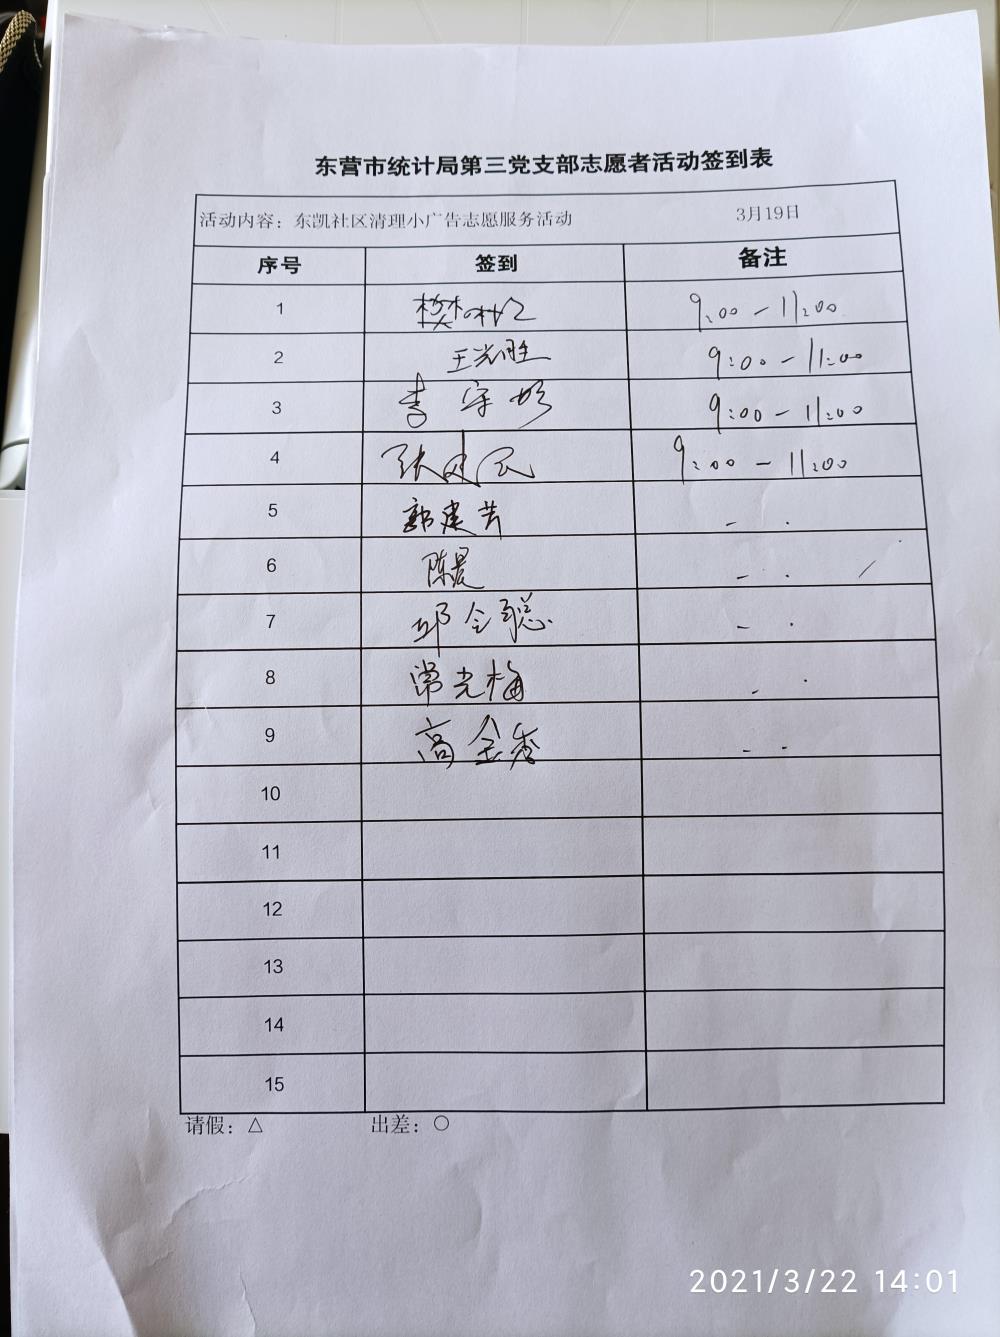 东营市统计局第三党支部志愿者活动签到表
活动内容：东凯社区清理小广告志愿服务活动 3月19日
序号 签到 备注
1 樊 9:00-11:00
2 王光胜 9:00-11:00
3 李守 9:00-11:00
4 张建民 9:00-11:00
5 郭建芳 - ·
6 陈晨 - ·
7 邱会聪 - ·
8 常光梅 - ·
9 高金香 - -
10
11
12
13
14
15
请假：△ 出差：○
2021/3/22 14:01